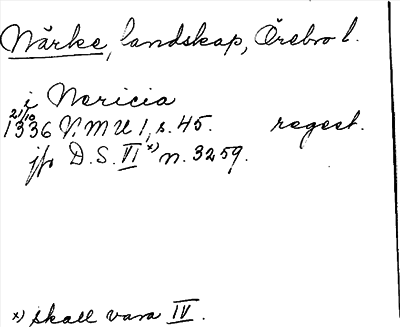 Närke, landskap, Örebro l.
i Nericia
21/10
1336 N.M.U 1, s. 45. regest.
jfr D.S. VI x) n. 3259.
x) skall vara IV.